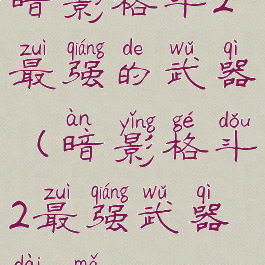 暗影格斗2
zuì qiáng de wǔ qì
最强的武器
àn yǐng gé dǒu
（暗影格斗
zuì qiáng wǔ qì
2最强武器
dài mǎ